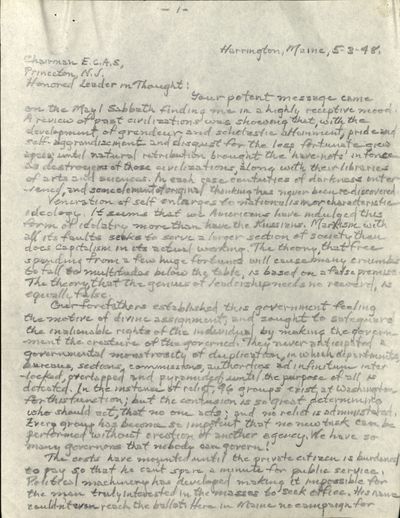 - 1 -
Harrington, Maine, 5-3-48.
Chairman E.C.A.S,
Princeton, N.J.
Honored Leader in Thought:
Your potent message came
on the May 1 Sabbath finding me in a highly receptive mood.
A review of past civilizations was showing that, with the
development of grandeur and scholastic attainment, pride and
self-aggrandizement and disgust for the less fortunate grew
apace, until natural retribution brought the have nots' in force
as destroyers of those civilizations, along with their libraries
of arts and sciences. In each case centuries of darkness inter-
vened, and some element of original thinking has never been re-discovered
Veneration of self enlarges to nationalism or characteristic
ideology. It seems that we Americans have indulged this
form of idolatry more than have the Russians. Marxism with
all its faults seeks to serve a larger section of society than
does Capitalism in its actual working. The theory, that free
spending from a few huge fortunes will cause many crumbs
to fall to multitudes below the table, is based on a false premise.
The theory, that the genius of leadership needs no reward, is
equally false.
Our forefathers established this government feeling
the motive of divine assignment, and sought to safeguard
the inalienable rights of the individual by making the govern-
ment the creature of the governed. They never anticipated a
governmental monstrosity of duplication, in which departments,
bureaus, sections, commissions, authorities ad infinitum inter
locked, overlapped and pyramided until the purpose of all is
defeated. In the instance of relief, 96 groups exist at Washington
for this function; but the confusion is so great determining
who should act, that no one acts; and no relief is administered.
Every group has become so impotent that no new task can be
performed without creation of another agency. We have so
many governors that nobody can govern!
The costs have mounted until the private citizen is burdened
to pay so that he can't spare a minute for public service.
Political machinery has developed making it impossible for
the man truly interested in the masses to seek office. His name
couldn't even reach the ballot. Here in Maine no campaign for